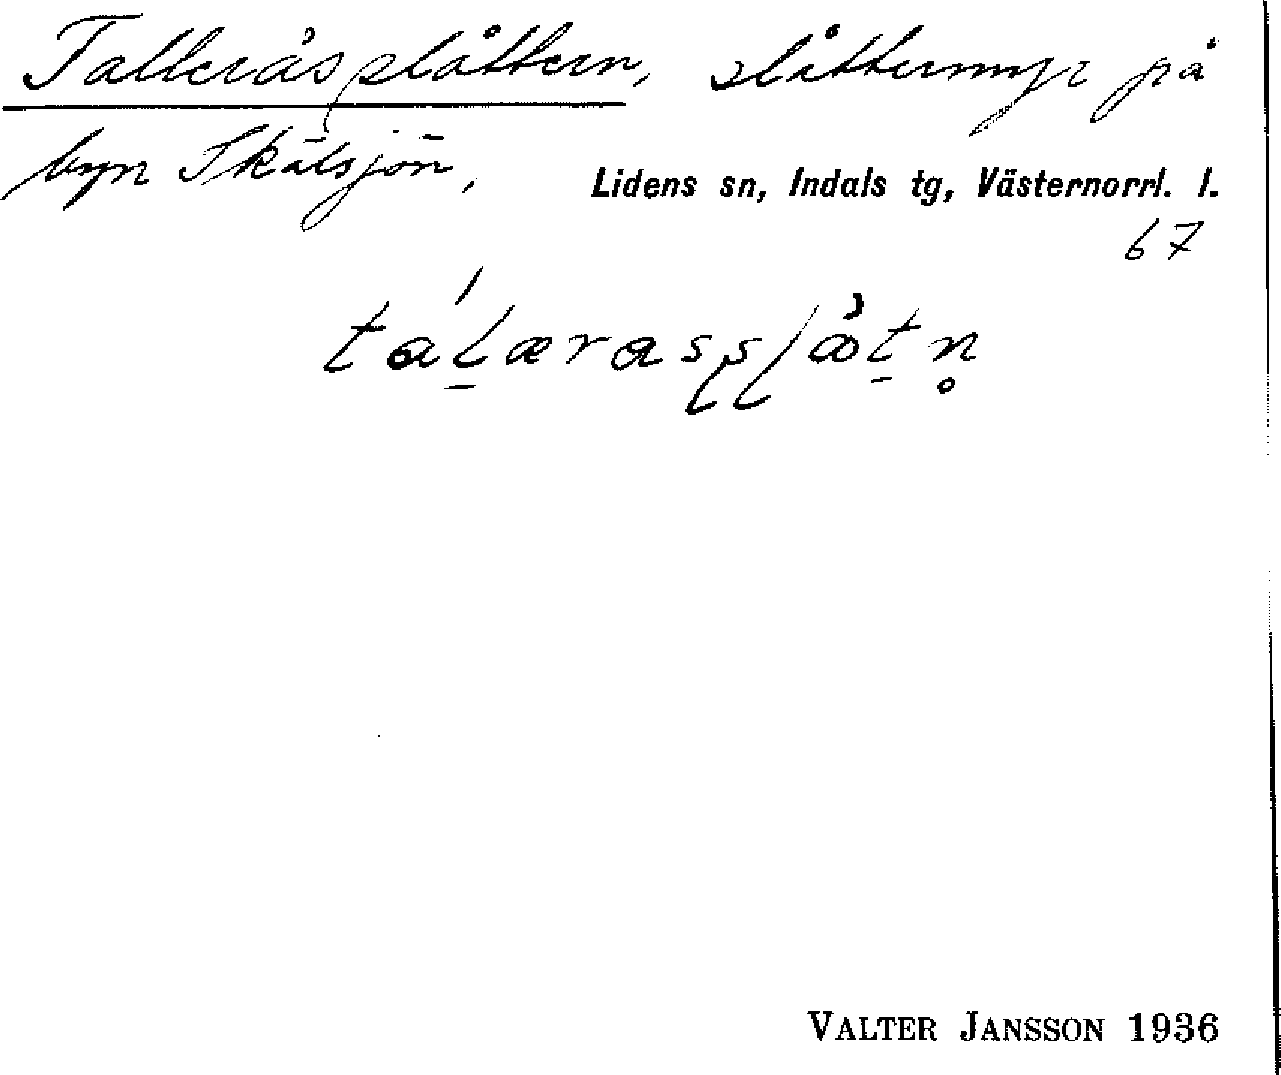 Talleråsslåttern, slåttermyr på
byn Skälsjön, Lidens sn, Indals tg, Västernorrl. l.
67
VALTER JANSSON 1936